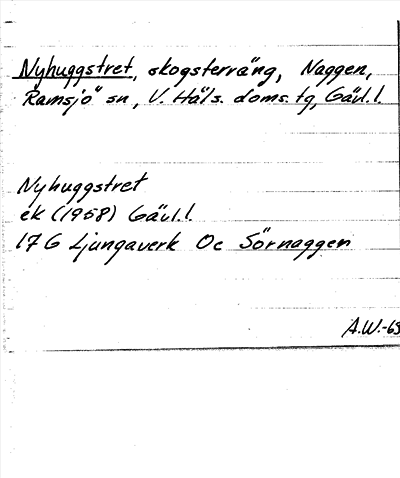 Nyhuggstret, skogsterräng, Naggen,
Ramsjö sn, V. Häls. doms. tg, Gävl. l.
Nyhuggstret
ek (1958) Gävl. l.
17 G Ljungaverk Oc Sörnaggen
A.W.-63